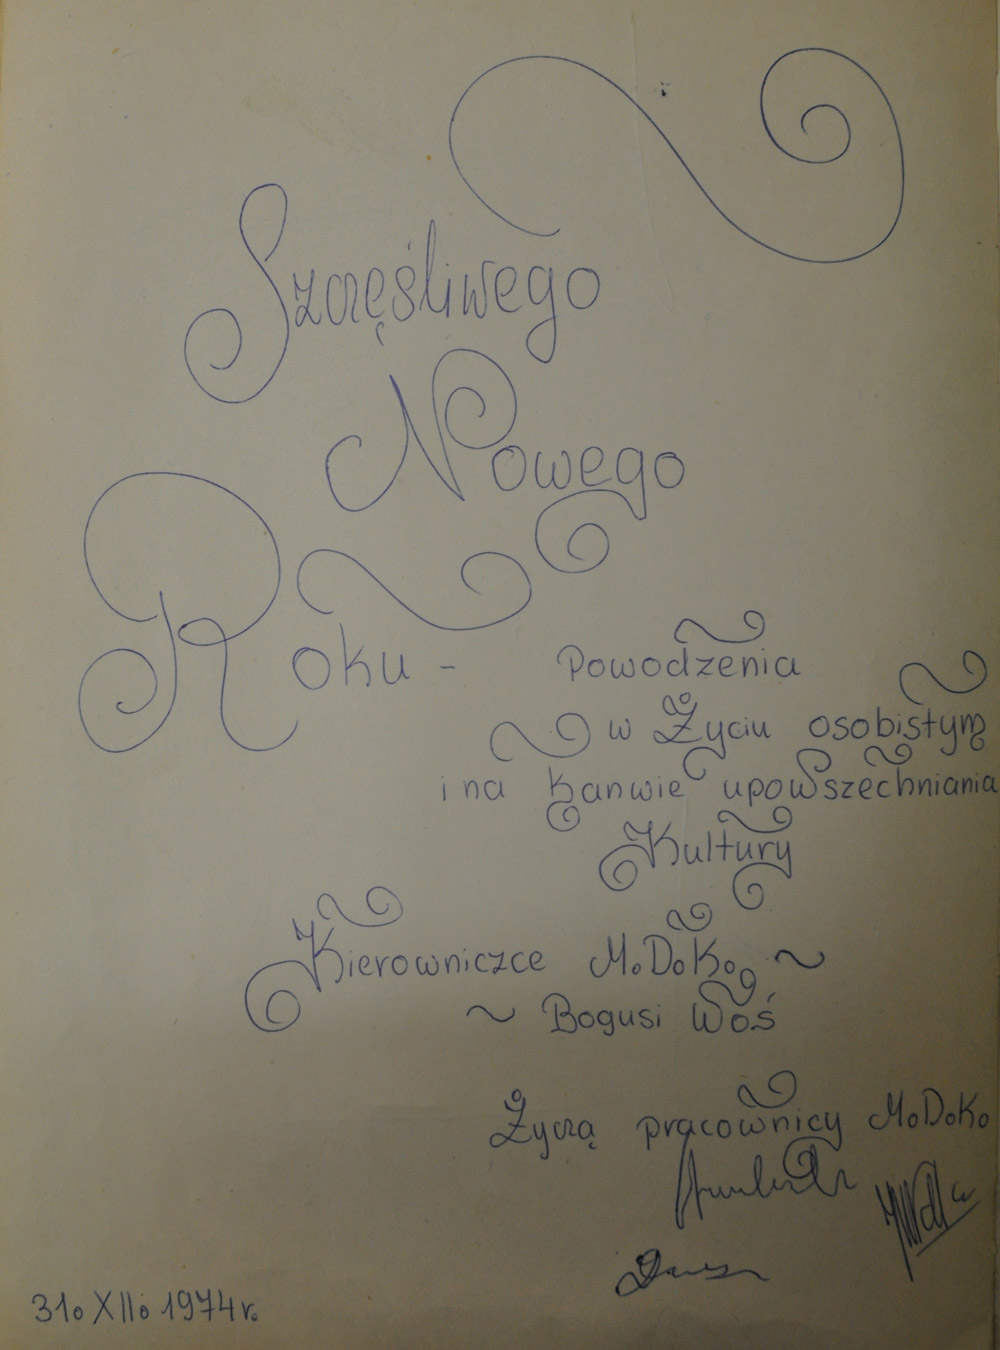 Szczęśliwego
Nowego
Roku - Powodzenia
w Życiu osobistym
i na Kanwie upowszechniania
Kultury
Kierowniczce M.D.K.
~ Bogusi Woś ~
Życzą pracownicy M.D.K.
31. XII. 1974 r.